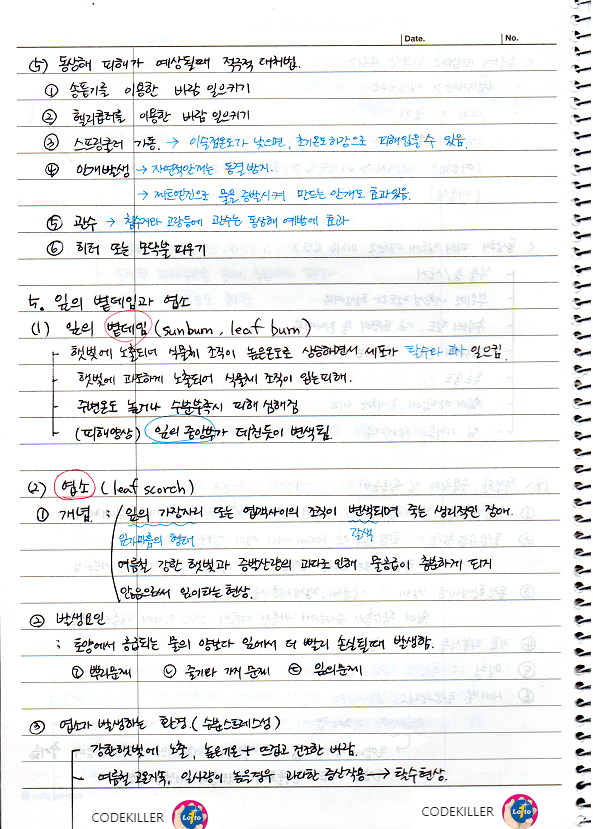 Date.
No.
(5) 동상해 피해가 예상될때 적극적 대처법.
① 송풍기를 이용한 바람 일으키기
② 헬리콥터를 이용한 바람 일으키기
③ 스프링쿨러 가동. → 이슬점온도가 낮으면, 초기온도하강으로 피해입을 수 있음.
④ 안개발생 → 자연적안개는 동결방지.
→ 제트엔진으로 물을 증발시켜 만드는 안개도 효과있음.
⑤ 관수 → 침수거나 고랑등에 관수는 동상해 예방에 효과
⑥ 히터 또는 모닥불 피우기
5. 잎의 볕데임과 엽소
(1) 잎의 볕데임 (sunburn, leaf burn)
햇빛에 노출되어 식물체 조직이 높은온도로 상승하면서 세포가 탈수와 괴사 일으킴.
햇빛에 과도하게 노출되어 식물체 조직이 입는피해.
주변온도 높거나 수분부족시 피해 심해짐
(피해양상) 잎의 중앙부가 데친듯이 변색됨.
(2) 엽소 (leaf scorch)
① 개념 : 잎의 가장자리 또는 엽맥사이의 조직이 변색되며 죽는 생리적인 장애.
잎가마름의 형태 갈색
여름철 강한 햇빛과 증발산량의 과다로 인해 물공급이 충분하게 되지
않음으로써 일어나는 현상.
② 발생요인
: 토양에서 공급되는 물의 양보다 잎에서 더 빨리 손실될때 발생함.
ⓐ 뿌리문제 ⓑ 줄기와 가지 문제 ⓒ 잎의문제
③ 엽소가 발생하는 환경 (수분스트레스성)
강한햇빛에 노출, 높은기온 + 뜨겁고 건조한 바람.
여름철 고온지속, 일사량이 높은경우 과다한 증산작용 → 탈수현상.
CODEKILLER
Lotto
CODEKILLER
Lotto